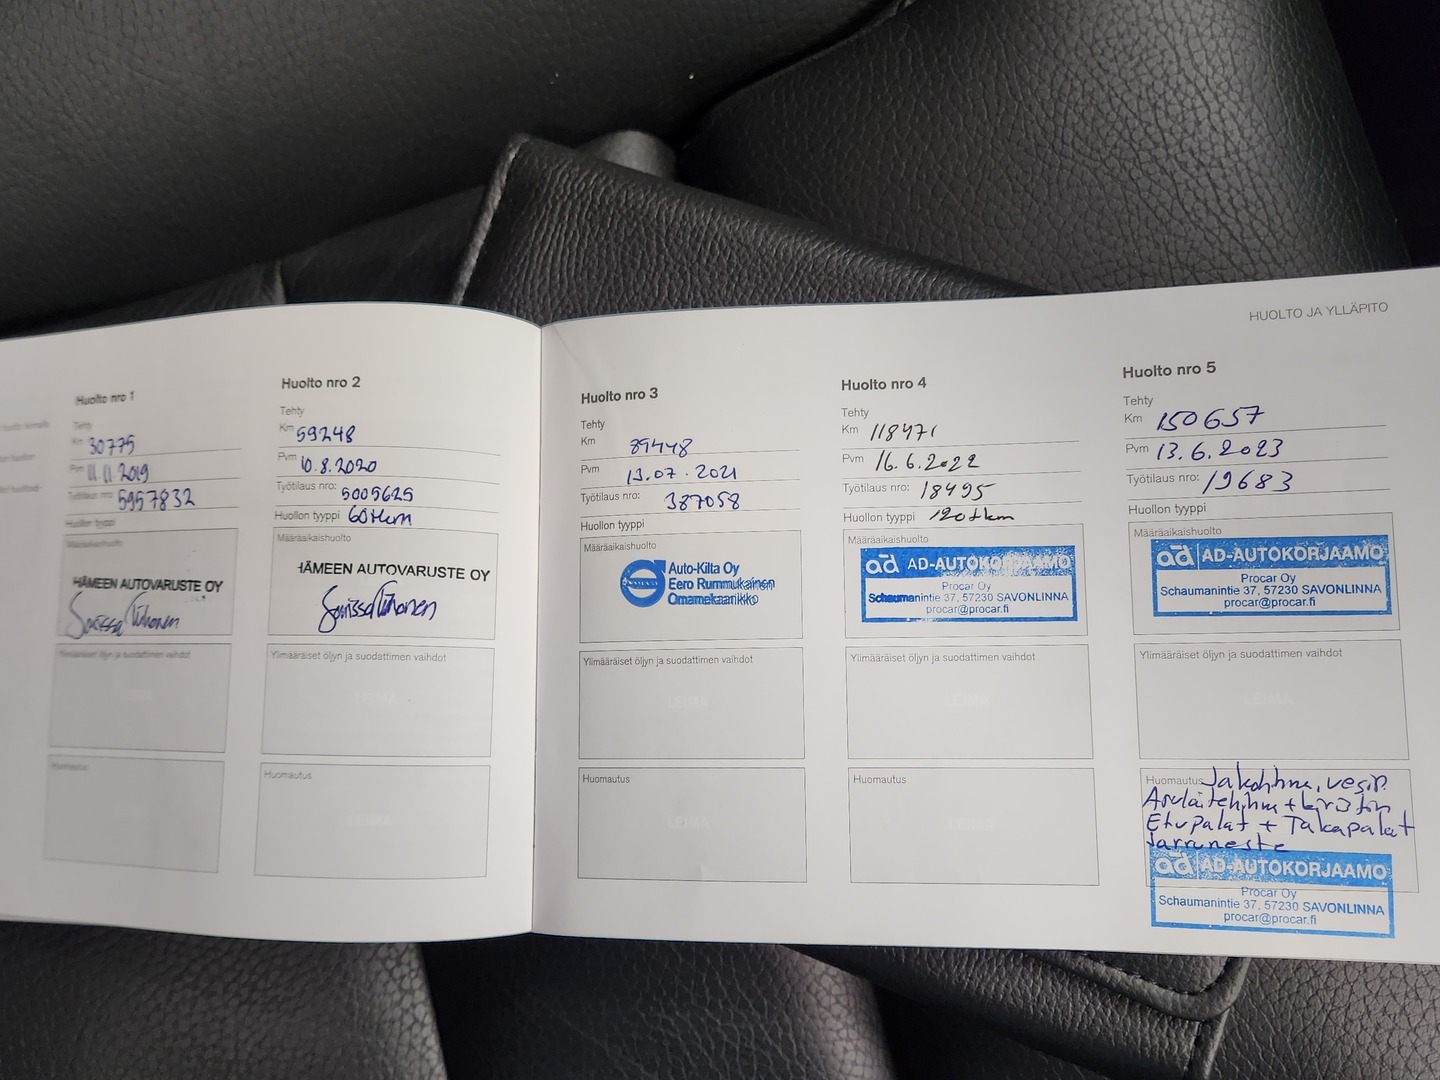 HUOLTO JA YLLÄPITO
Huolto nro 1
Tehty
Km 30775
Pvm 11.11.2019
Työtilaus nro: 5957832
Huollon tyyppi
Määräaikaishuolto
HÄMEEN AUTOVARUSTE OY
Ylimääräiset öljyn ja suodattimen vaihdot
LEIMA
Huomautus
Huolto nro 2
Tehty
Km 59248
Pvm 10.8.2020
Työtilaus nro: 5005625
Huollon tyyppi 60tkm
Määräaikaishuolto
HÄMEEN AUTOVARUSTE OY
Ylimääräiset öljyn ja suodattimen vaihdot
LEIMA
Huomautus
LEIMA
Huolto nro 3
Tehty
Km 89448
Pvm 13.07.2021
Työtilaus nro: 387058
Huollon tyyppi
Määräaikaishuolto
VOLVO
Auto-Kilta Oy
Eero Rummukainen
Omamekaanikko
Ylimääräiset öljyn ja suodattimen vaihdot
LEIMA
Huomautus
LEIMA
Huolto nro 4
Tehty
Km 118471
Pvm 16.6.2022
Työtilaus nro: 18495
Huollon tyyppi 120tkm
Määräaikaishuolto
ad AD-AUTOKORJAAMO
Procar Oy
Schaumanintie 37, 57230 SAVONLINNA
procar@procar.fi
Ylimääräiset öljyn ja suodattimen vaihdot
LEIMA
Huomautus
LEIMA
Huolto nro 5
Tehty
Km 150657
Pvm 13.6.2023
Työtilaus nro: 19683
Huollon tyyppi
Määräaikaishuolto
ad AD-AUTOKORJAAMO
Procar Oy
Schaumanintie 37, 57230 SAVONLINNA
procar@procar.fi
Ylimääräiset öljyn ja suodattimen vaihdot
LEIMA
Huomautus Jakohihna, vesip.
Apulaitehihna + kiristin
Etupalat + Takapalat
Jarruneste
ad AD-AUTOKORJAAMO
Procar Oy
Schaumanintie 37, 57230 SAVONLINNA
procar@procar.fi